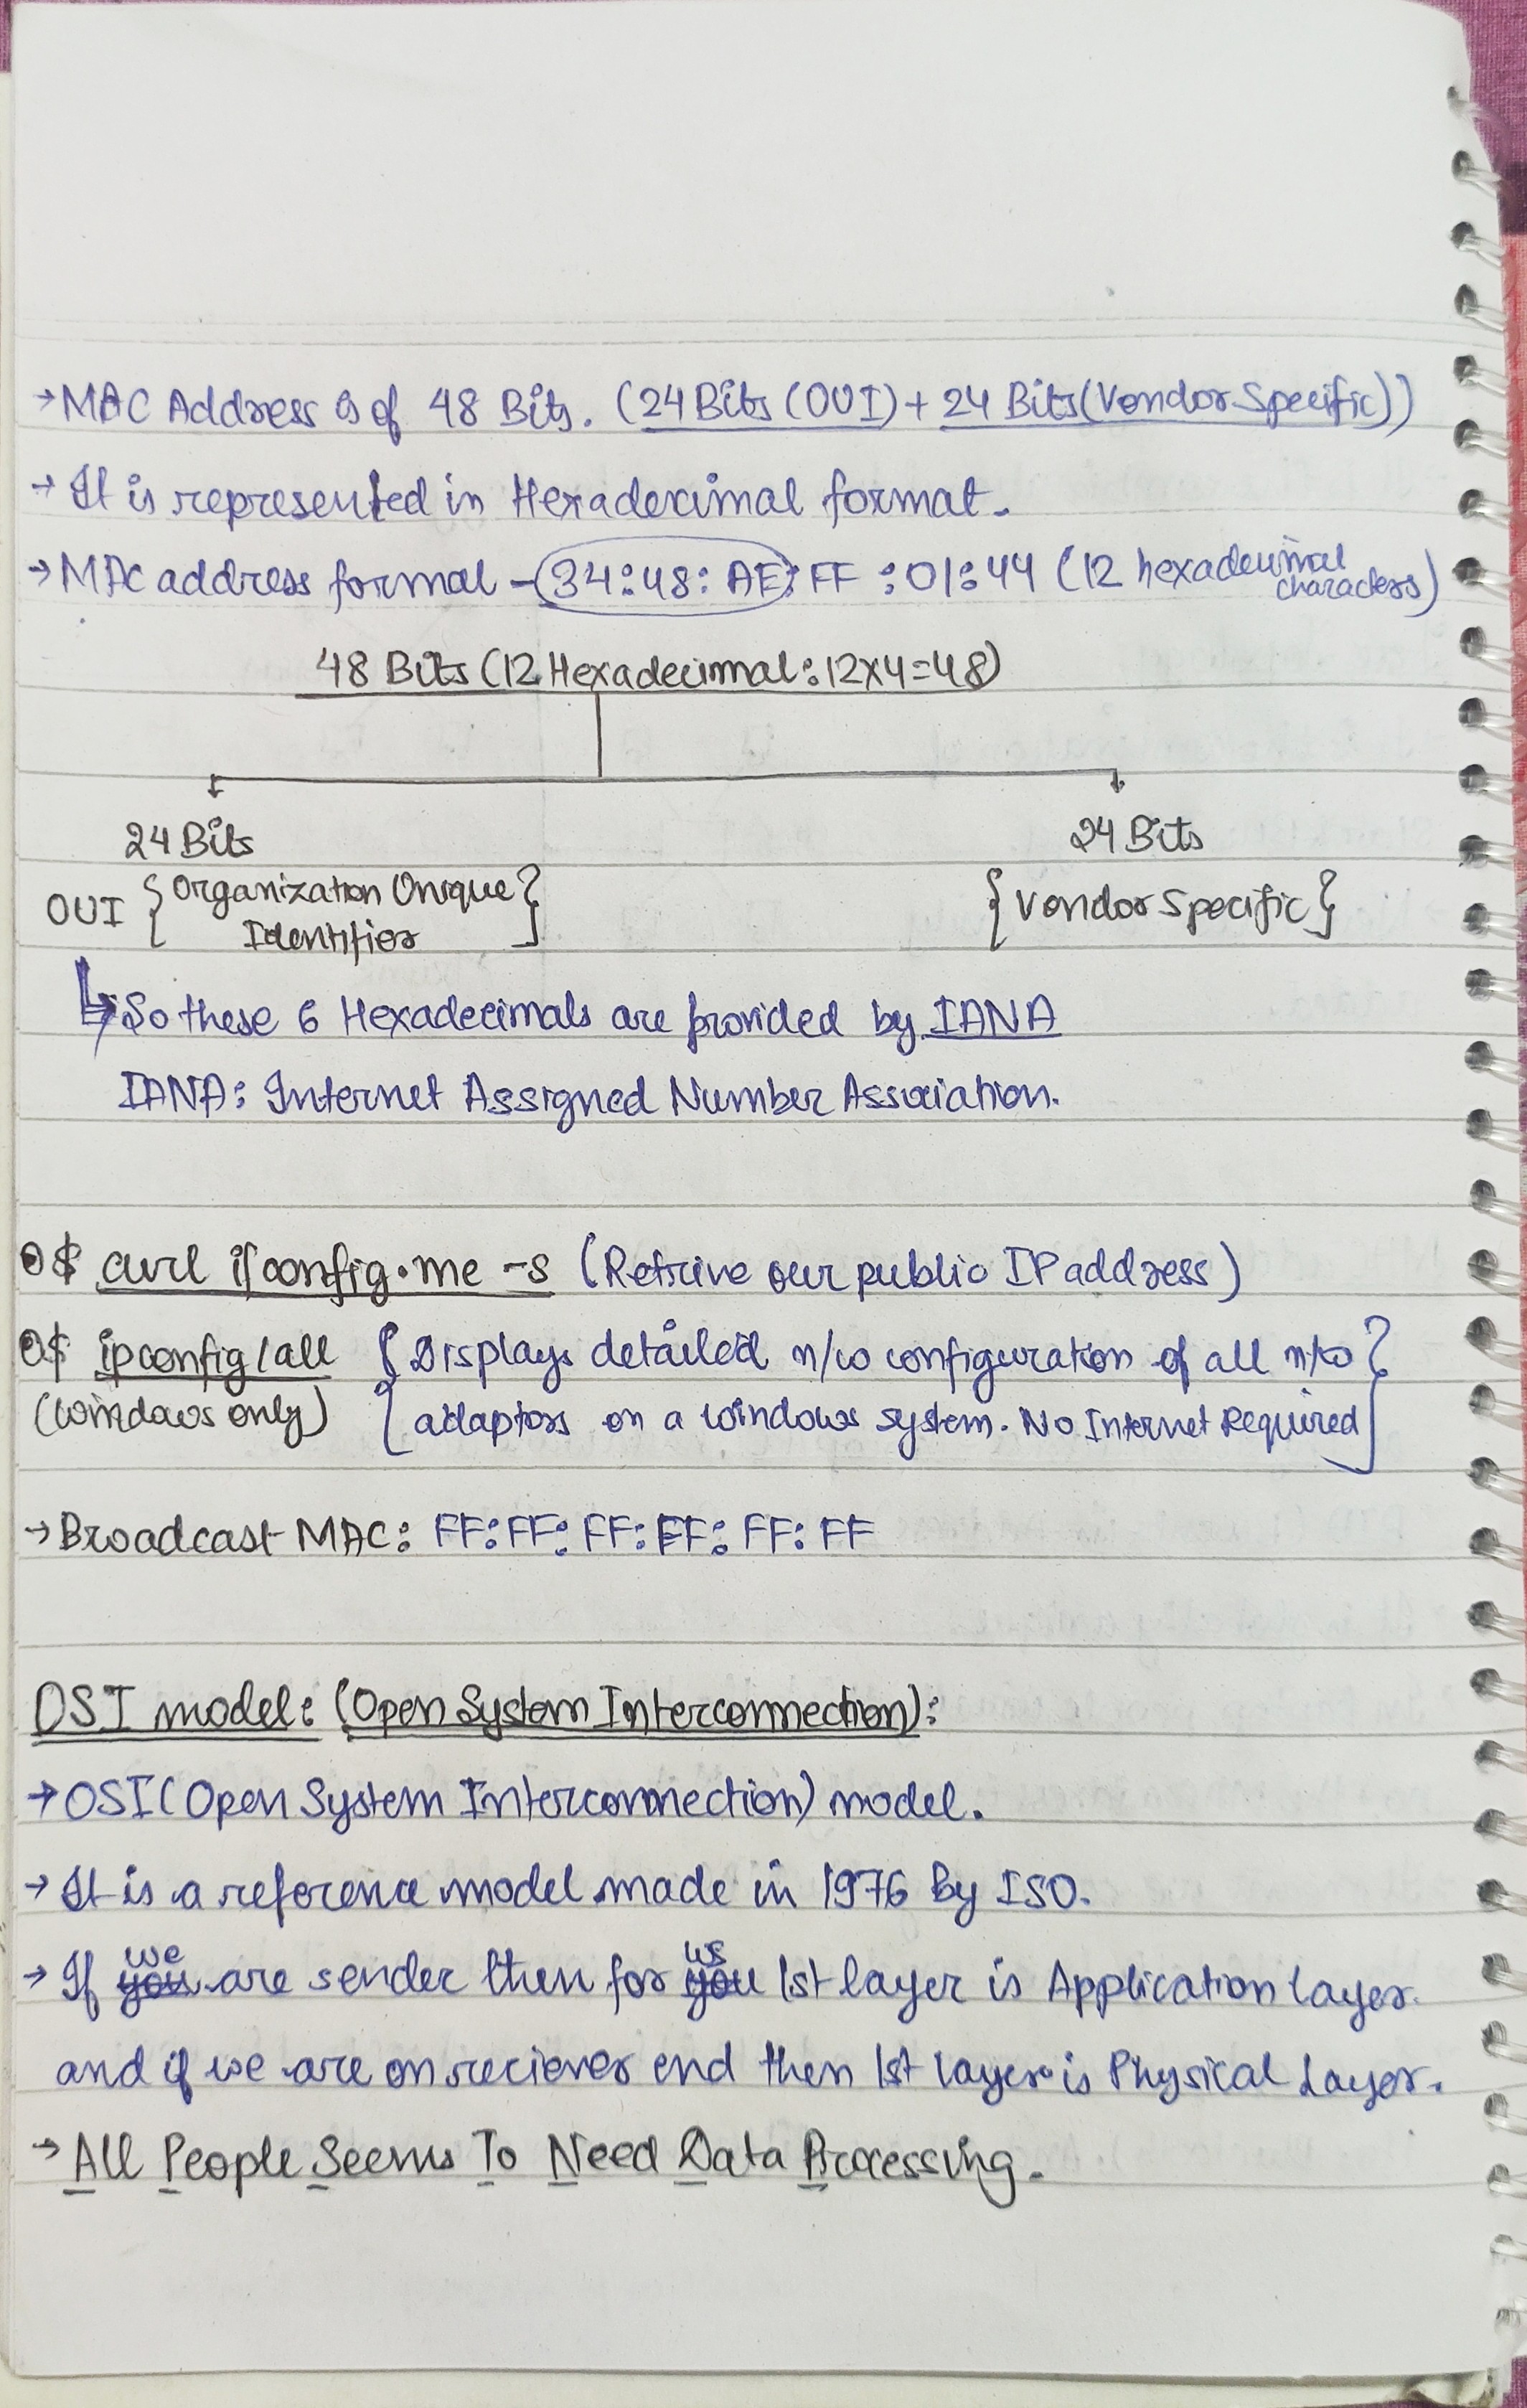 → MAC Address is of 48 Bits. (24 Bits (OUI) + 24 Bits (Vendor Specific))
→ It is represented in Hexadecimal format.
→ MAC address format - 34:48:AE:FF:01:44 (12 hexadecimal characters)
48 Bits (12 Hexadecimal: 12x4=48)
24 Bits 24 Bits
OUI { Organization Unique Identifier } { Vendor Specific }
↳ So these 6 Hexadecimals are provided by IANA
IANA: Internet Assigned Number Association.
$ curl ifconfig.me -s (Retrive our public IP address)
$ ipconfig/all { Displays detailed n/w configuration of all n/w
(Windows only) adaptors on a windows system. No Internet Required }
→ Broadcast MAC: FF:FF:FF:FF:FF:FF
OSI model: (Open System Interconnection):
→ OSI (Open System Interconnection) model.
→ It is a reference model made in 1976 by ISO.
→ If you we are sender then for you us 1st layer is Application layer.
and if we are on reciever end then 1st layer is Physical Layer.
→ All People Seems To Need Data Processing.